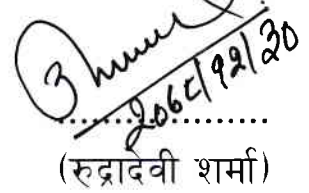 २०६८/१२/३०
....................
(रुद्रादेवी शर्मा)